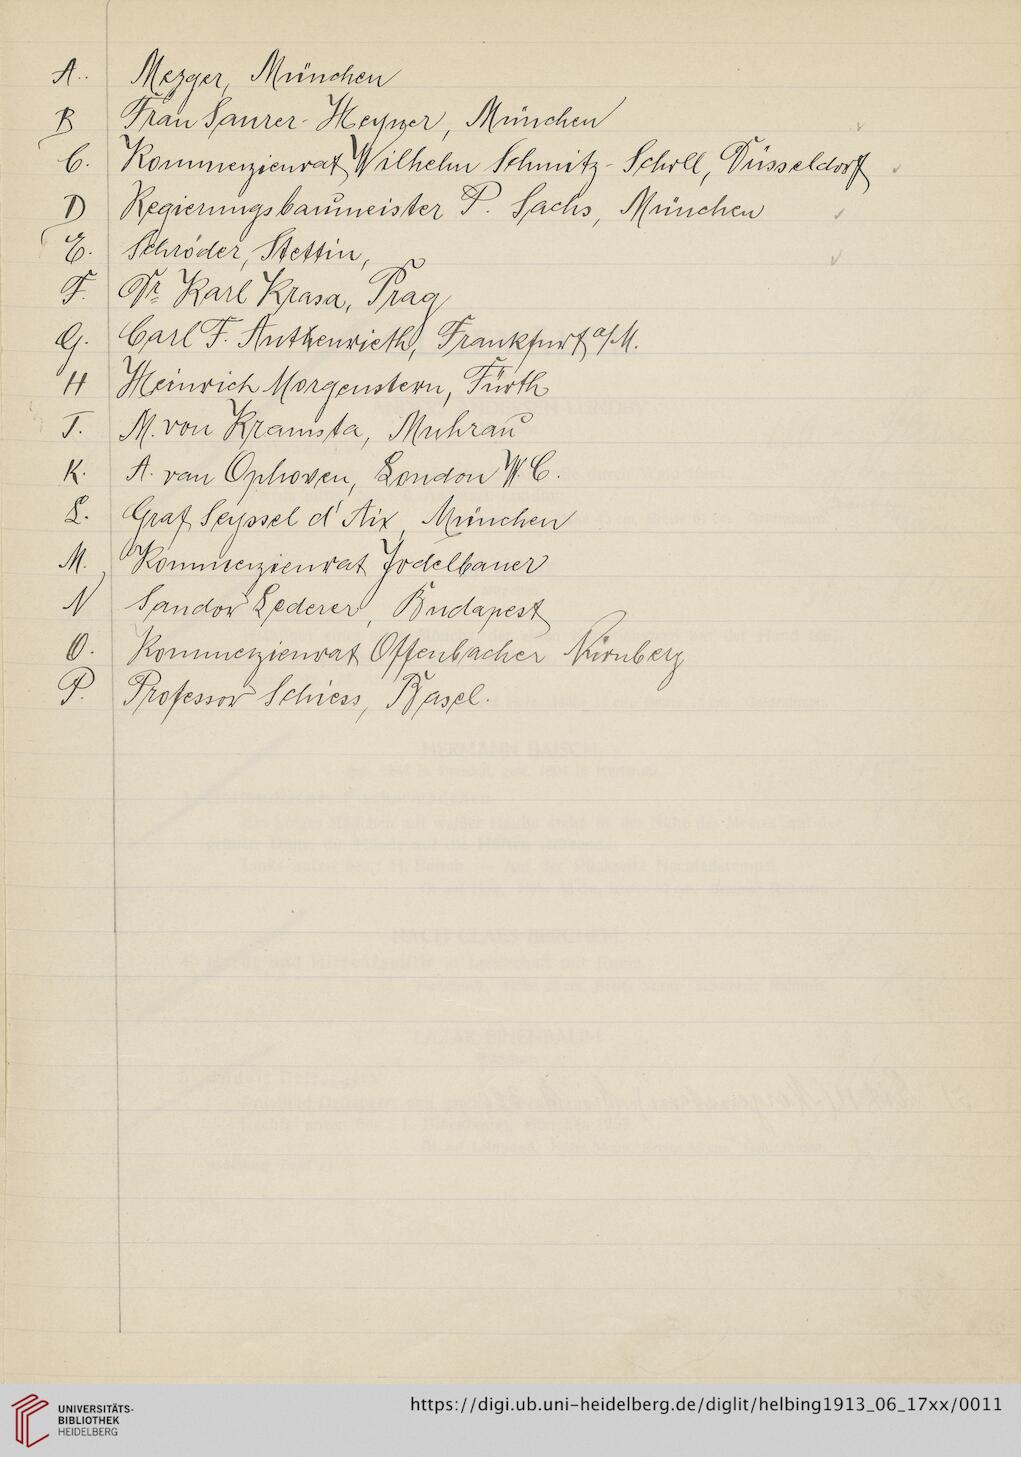 A. Mezger, München
B Frau Saurer-Heyner, München
C. Kommerzienrat Wilhelm Schmitz-Scholl, Düsseldorf
D Regierungsbaumeister P. Sachs, München
E. Schröder, Stettin,
F. Dr. Karl Krasa, Prag
G. Carl F. Authenrieth, Frankfurt a/M.
H Heinrich Morgenstern, Fürth
J. M. von Kramsta, Muhrau
K. A. van Ophoven, London W.C.
L. Graf Seyssel d'Aix, München
M. Kommerzienrat Jodelbauer
N Sandor Lederer, Budapest
O. Kommerzienrat Offenbacher Nürnberg
P. Professor Schiess, Basel.
UNIVERSITÄTS-
BIBLIOTHEK
HEIDELBERG
https://digi.ub.uni-heidelberg.de/diglit/helbing1913_06_17xx/0011